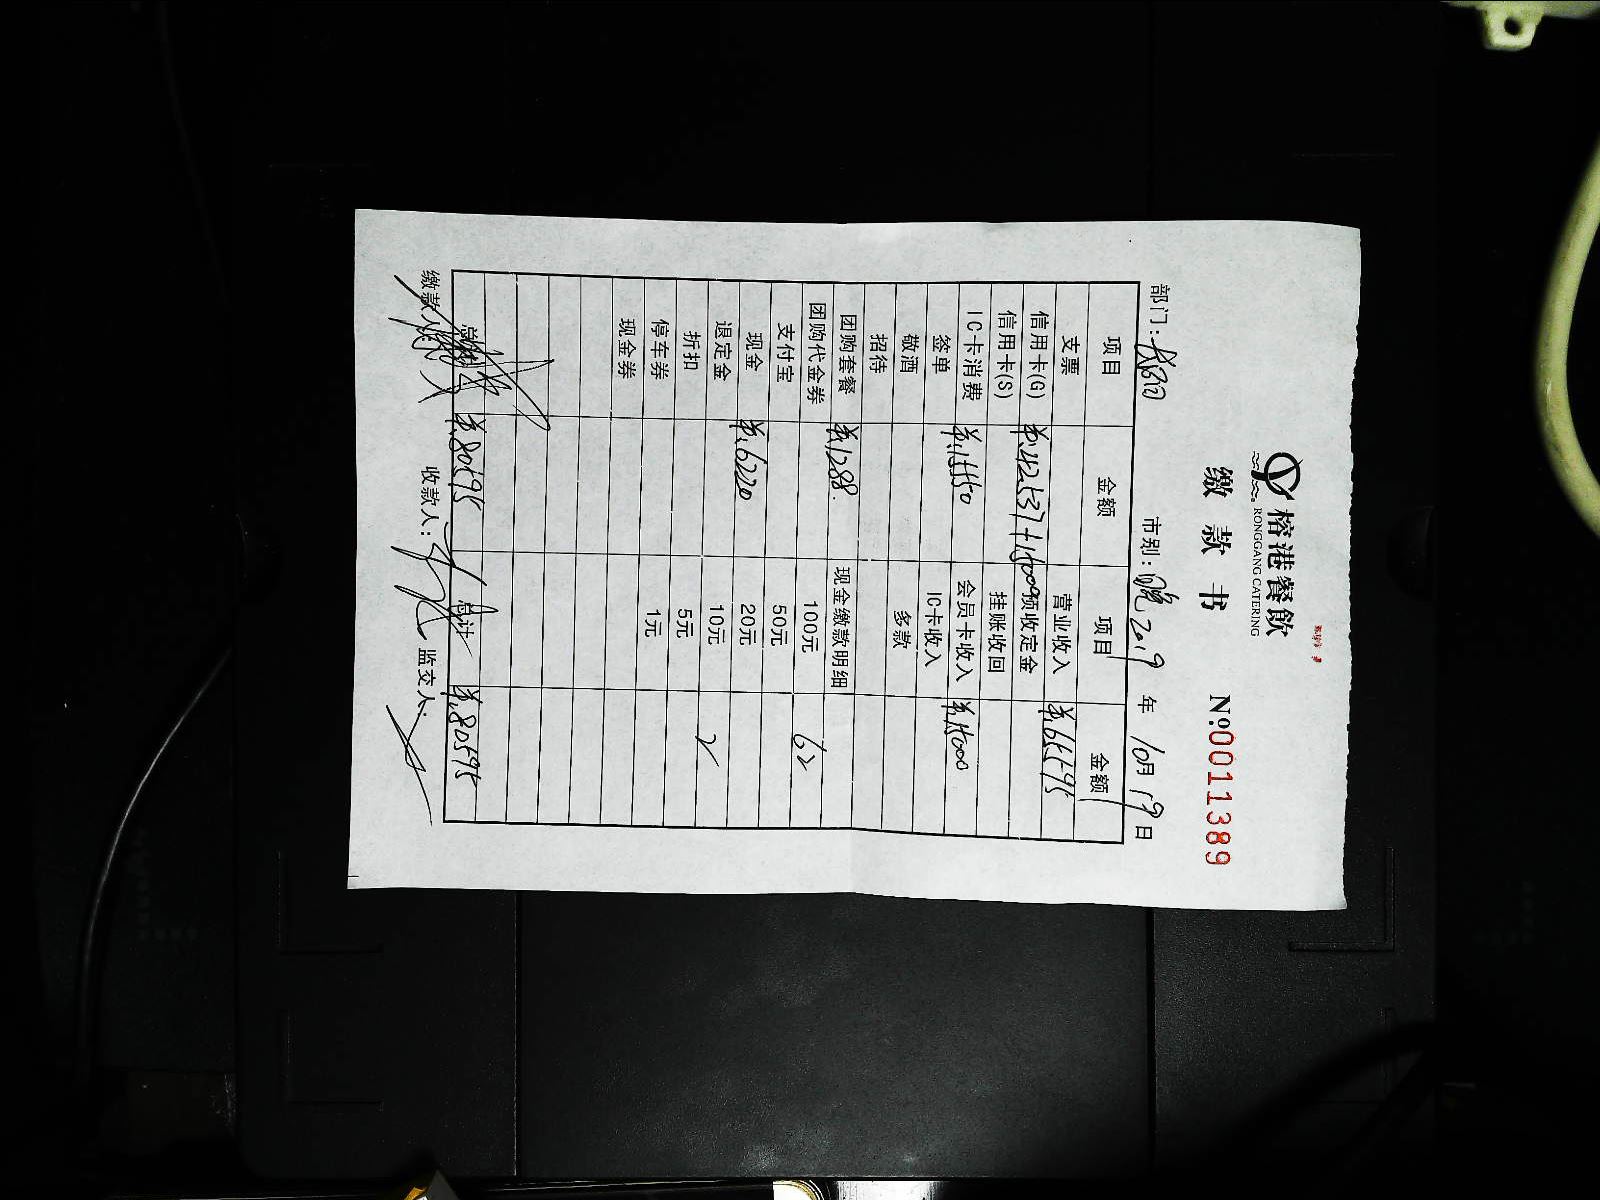 榕港餐飲
RONGGANG CATERING
缴款书 №0011389
部门: 市别:晚 2019年10月19日
项目 金额 项目 金额
支票 营业收入 ¥65595
信用卡(G) ¥42537+15000 预收定金
信用卡(S) 挂账收回
IC卡消费 ¥15550 会员卡收入 ¥15000
签单 IC卡收入
敬酒 多款
招待
团购套餐 ¥1288 现金缴款明细
团购代金券 100元 62
支付宝 50元
现金 ¥6220 20元
退定金 10元 2
折扣 5元
停车券 1元
现金券
总计 ¥80595 总计 ¥80595
缴款人: 收款人: 监交人: